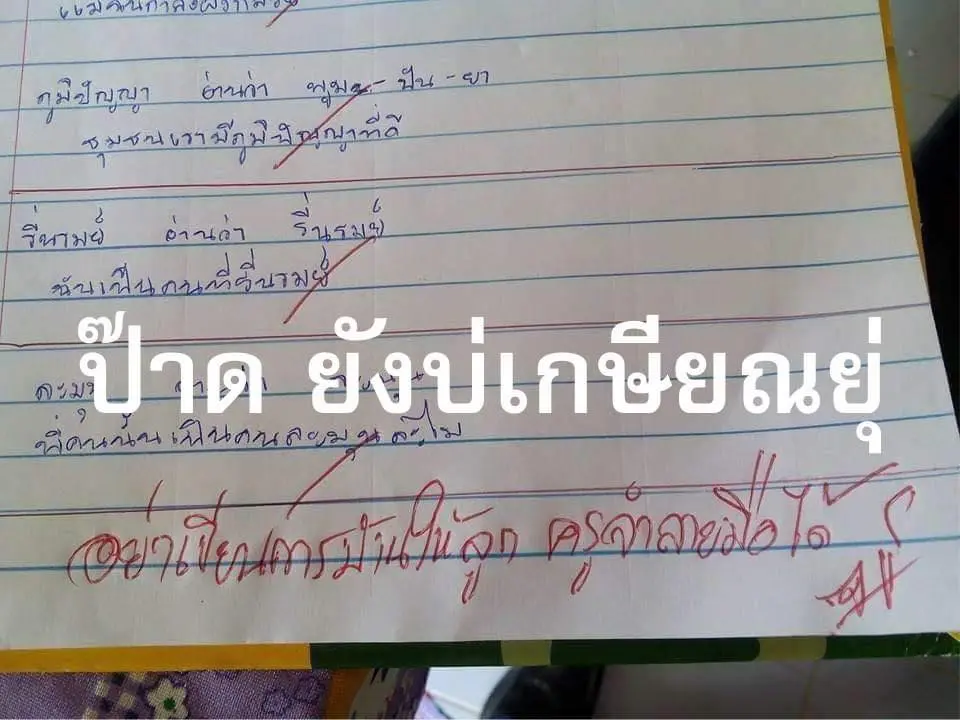 ภูมิปัญญา อ่านว่า พูม - ปัน - ยา
ชุมชนเรามีภูมิปัญญาที่ดี
รื่นรมย์ อ่านว่า รื่นรมย์
ฉันเป็นคนที่รื่นรมย์
ป๊าด ยังบ่เกษียณยุ่
ละมุน
พี่คนนั้นเป็นคนละมุนละไม
อย่าเขียนการบ้านให้ลูก ครูจำลายมือได้